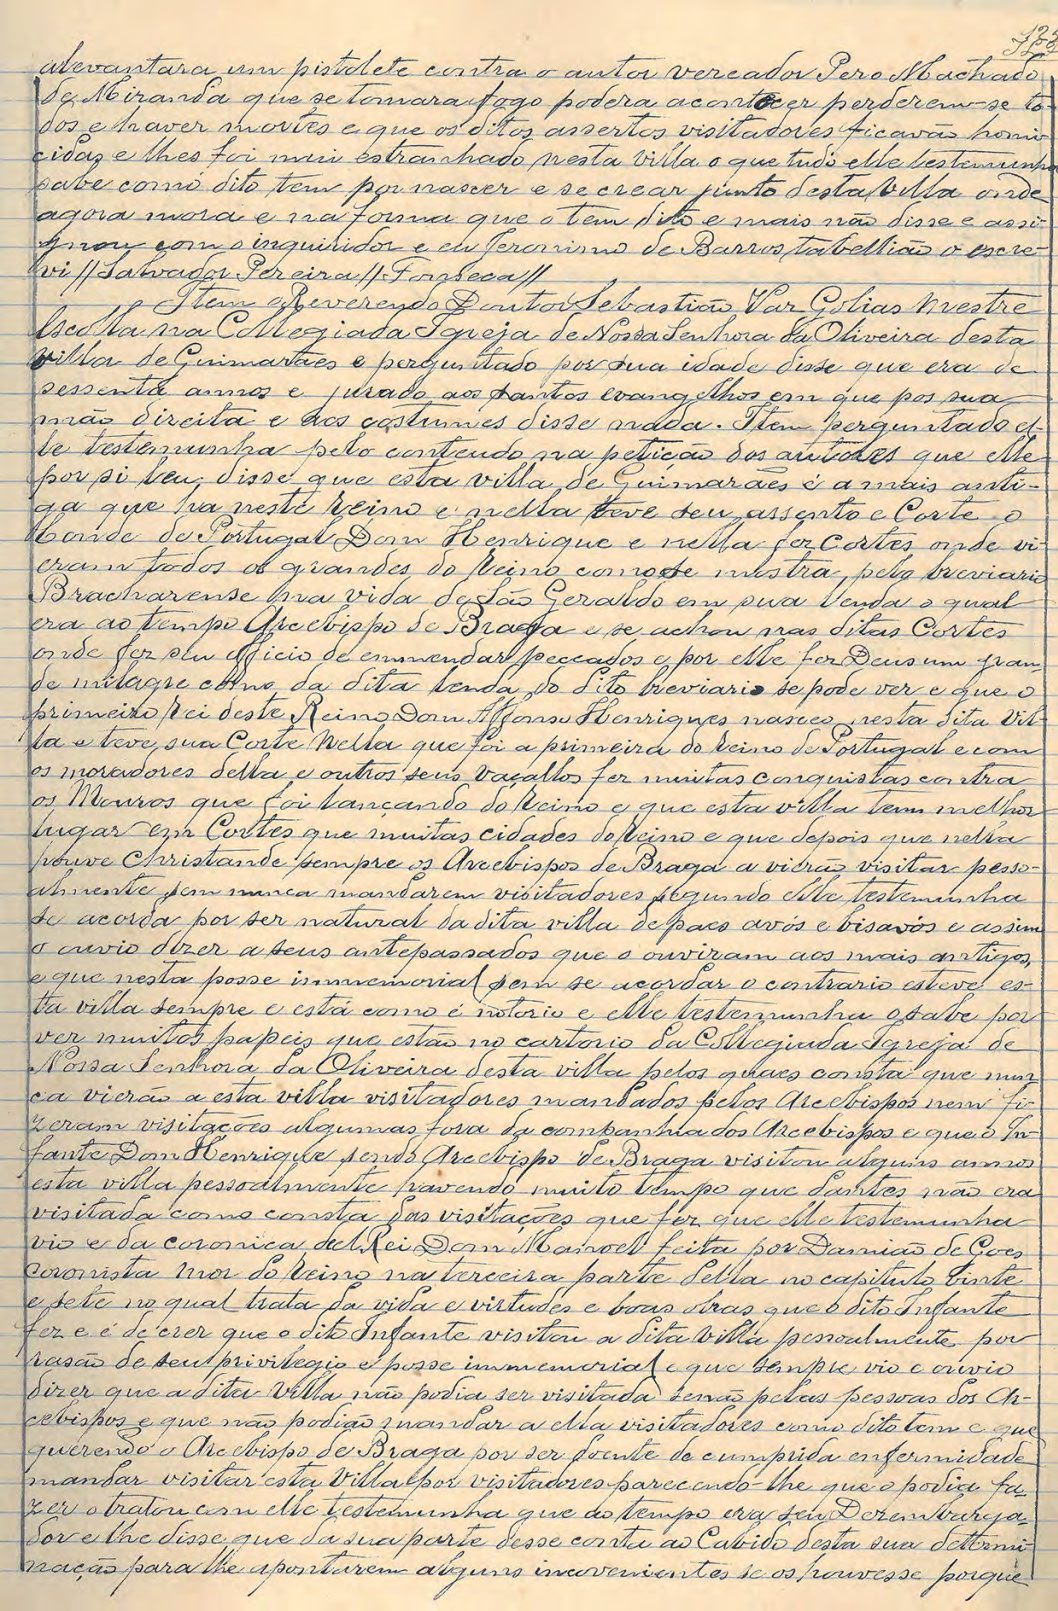 alevantara um pistolete contra o autor vereador Pero Machado
de Miranda que se tomara fogo podera acontecer perderem-se to-
dos e haver mortes e que os ditos assertos visitadores ficavão homi-
cidas e lhes foi mui estranhado nesta villa o que tudo elle testemunha
sabe como dito tem por nascer e se crear junto desta Villa onde
agora mora e na forma que o tem dito e mais não disse e assi-
gnou com o inquiridor e eu Jeronimo de Barros tabellião o escre-
vi // Salvador Pereira // Fonseca //
Item o Reverendo Doutor Sebastião Vaz Golias Mestre
Escolla na Collegiada Igreja de Nossa Senhora da Oliveira desta
villa de Guimarães e perguntado por sua idade disse que era de
sessenta annos e jurado aos santos evangelhos em que pos sua
mão direita e aos costumes disse nada. Item perguntado el-
le testemunha pelo conteudo na petição dos autores que elle
por si leu disse que esta villa de Guimarães é a mais anti-
ga que ha neste reino e nella teve seu assento e Corte o
Conde de Portugal Dom Henrique e nella fez Cortes onde vi-
eram todos os grandes do reino como se mostra pelo breviario
Bracharense na vida de São Geraldo em sua lenda o qual
era ao tempo Arcebispo de Braga e se achou nas ditas Cortes
onde fez seu officio de emmendar peccados e por elle fez Deus um gran-
de milagre como da dita lenda do dito breviario se pode ver e que o
primeiro rei deste Reino Dom Affonso Henriques nasceo nesta dita vil-
la e teve sua Corte Nella que foi a primeira do reino de Portugal e com
os moradores della e outros seus vaçallos fez muitas conquistas contra
os Mouros que foi lançando do reino e que esta villa tem melhor
lugar em Cortes que muitas cidades do reino e que depois que nella
houve Christande sempre os Arcebispos de Braga a vierão visitar pesso-
almente sem nunca mandarem visitadores segundo elle testemunha
se acorda por ser natural da dita villa de paes avós e bisavós e assim
o ouvio dizer a seus antepassados que o ouviram aos mais antigos,
e que nesta posse immemorial sem se acordar o contrario esteve es-
ta villa sempre e está como é notorio e elle testemunha o sabe por
ver muitos papeis que estão no cartorio da Collegiada Igreja de
Nossa Senhora da Oliveira desta villa pelos quaes consta que nun-
ca vierão a esta villa visitadores mandados pelos Arcebispos nem fi-
zeram visitações algumas fora da companhia dos Arcebispos e que o In-
fante Dom Henrique sendo Arcebispo de Braga visitou alguns annos
esta villa pessoalmente havendo muito tempo que dantes não era
visitada como consta das visitações que fez que elle testemunha
vio e da coronica del Rei Dom Manoel feita por Damião de Goes
Coronista Mor do reino na terceira parte della no capitulo vinte
e sete no qual trata da vida e virtudes e boas obras que o dito Infante
fez e é de crer que o dito Infante visitou a dita Villa pessoalmente por
rasão de seu privilegio e posse immemorial e que sempre vio e ouvio
dizer que a dita Villa não podia ser visitada senão pelas pessoas dos Ar-
cebispos e que não podião mandar a ella visitadores como dito tem e que
querendo o Arcebispo de Braga por ser doente de cumprida enfermidade
mandar visitar esta Villa por visitadores parecendo-lhe que o podia fa-
zer o tratou com elle testemunha que ao tempo era seu Dezembarga-
dor e lhe disse que da sua parte desse conta ao Cabido desta sua determi-
nação para lhe apontarem alguns incovenientes se os houvesse porque